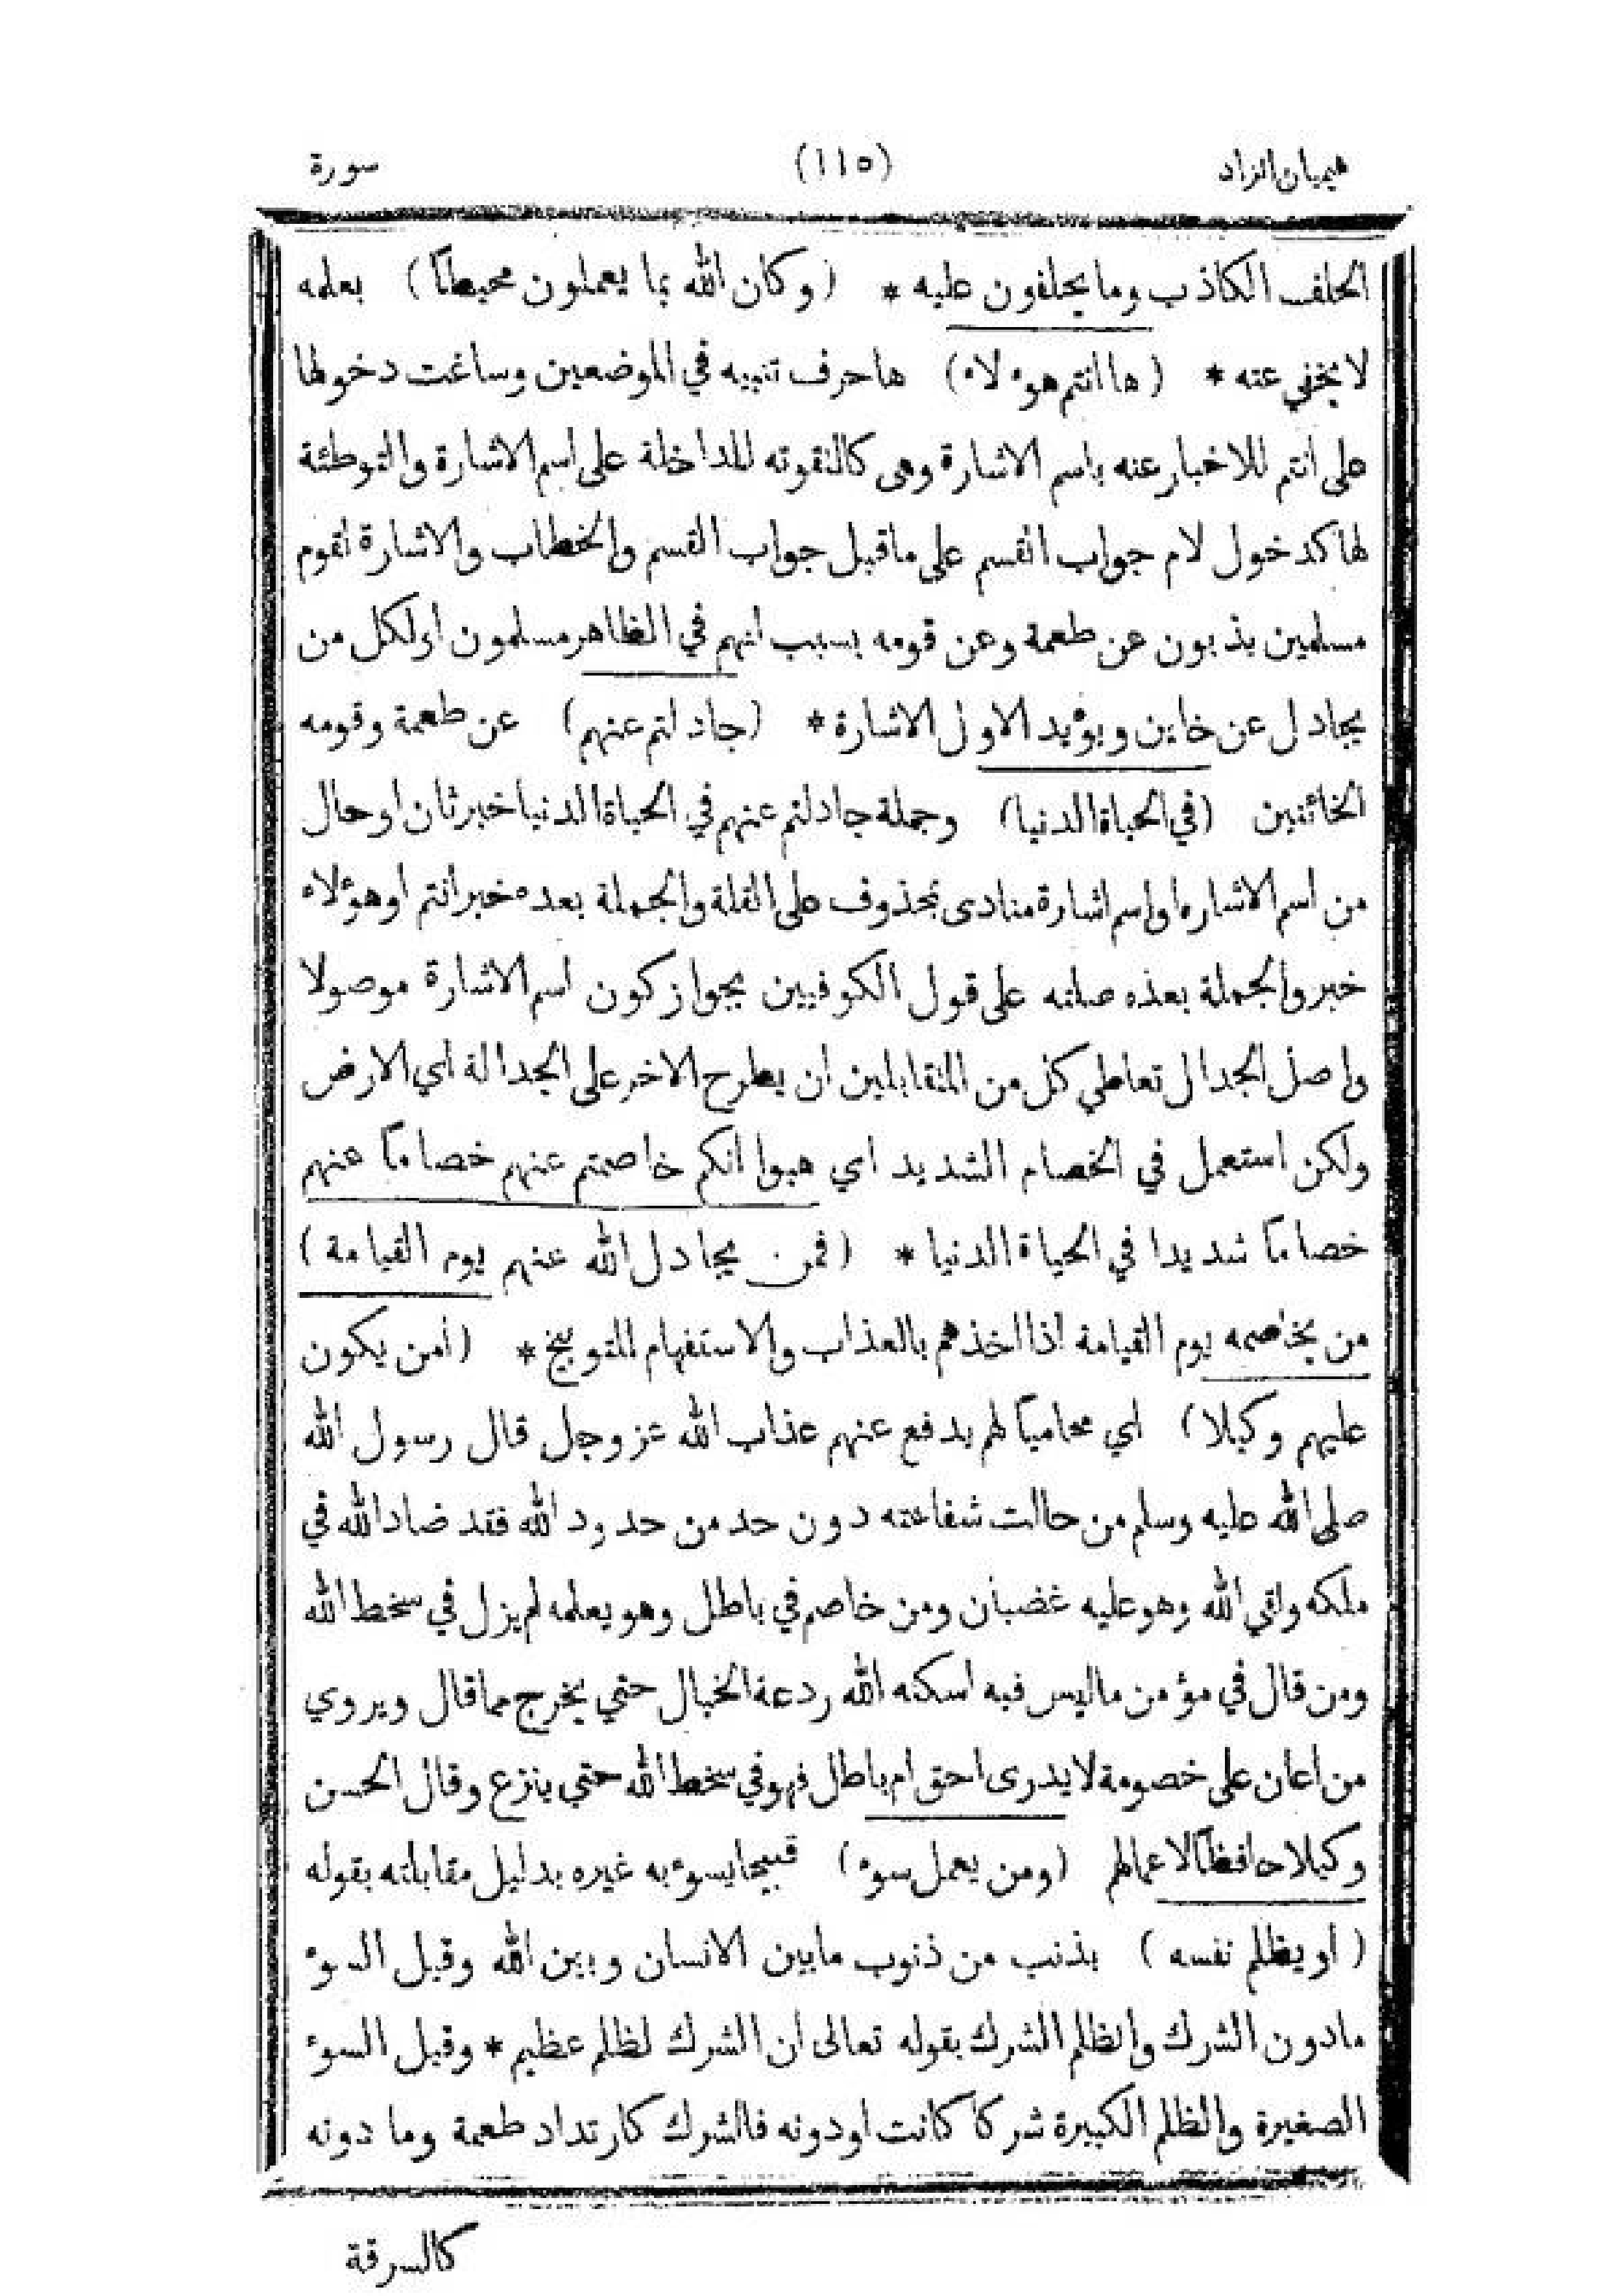 هيميان الزاد (١١٥) سورة
الحلف الكاذب وما يحلفون عليه * (وكان الله بما يعملون محيطاً) بعلمه
لا يخفي عنه * (ها انتم هوءلاء) ها حرف تنبيه في الموضعين وساغت دخولها
على انتم للاخبار عنه باسم الاشارة وهى كالتقوته للداخلة على اسم الاشارة والتوطئة
لها كدخول لام جواب القسم على ما قبل جواب القسم والخطاب والاشارة لقوم
مسلمين يذبون عن طعمة وعن قومه بسبب انهم في الظاهر مسلمون او لكل من
يجادل عن خاين ويؤيد الاول الاشارة * (جادلتم عنهم) عن طعمة وقومه
الخائنين (في الحياة الدنيا) وجملة جادلتم عنهم في الحياة الدنيا خبر ثان او حال
من اسم الاشاره او اسم اشارة منادى بمحذوف على القلة والجملة بعده خبر انتم او هؤلاء
خبر والجملة بعده صلته على قول الكوفيين بجواز كون اسم الاشارة موصولا
واصل الجدال تعاطي كل من المتقابلين ان يطرح الاخر على الجدالة اي الارض
ولكن استعمل في الخصام الشديد اي هبوا انكم خاصمتم عنهم خصاماً عنهم
خصاماً شديدا في الحياة الدنيا * (فمن يجادل الله عنهم يوم القيامة)
من يخاصمه يوم القيامة اذا اخذهم بالعذاب والاستفهام للتوبيخ * (أمن يكون
عليهم وكيلا) اي محامياً لهم يدفع عنهم عذاب الله عز وجل قال رسول الله
صلى الله عليه وسلم من حالت شفاعته دون حد من حدود الله فقد ضاد الله في
ملكه ولقي الله وهو عليه غضبان ومن خاصم في باطل وهو يعلمه لم يزل في سخط الله
ومن قال في مؤمن ما ليس فيه اسكنه الله ردعة الخبال حتي يخرج مما قال ويروي
من اعان على خصومة لا يدرى احق ام باطل فهو في سخط الله حتي ينزع وقال الحسن
وكيلا حافظاً لاعمالهم (ومن يعمل سوء) قبيحا يسوء به غيره بدليل مقابلته بقوله
(او يظلم نفسه) بذنب من ذنوب ما بين الانسان وبين الله وقيل السوء
ما دون الشرك والظلم الشرك بقوله تعالى ان الشرك لظلم عظيم * وقيل السوء
الصغيرة والظلم الكبيرة شركاً كانت او دونه فالشرك كارتداد طعمة وما دونه
كالسرقة